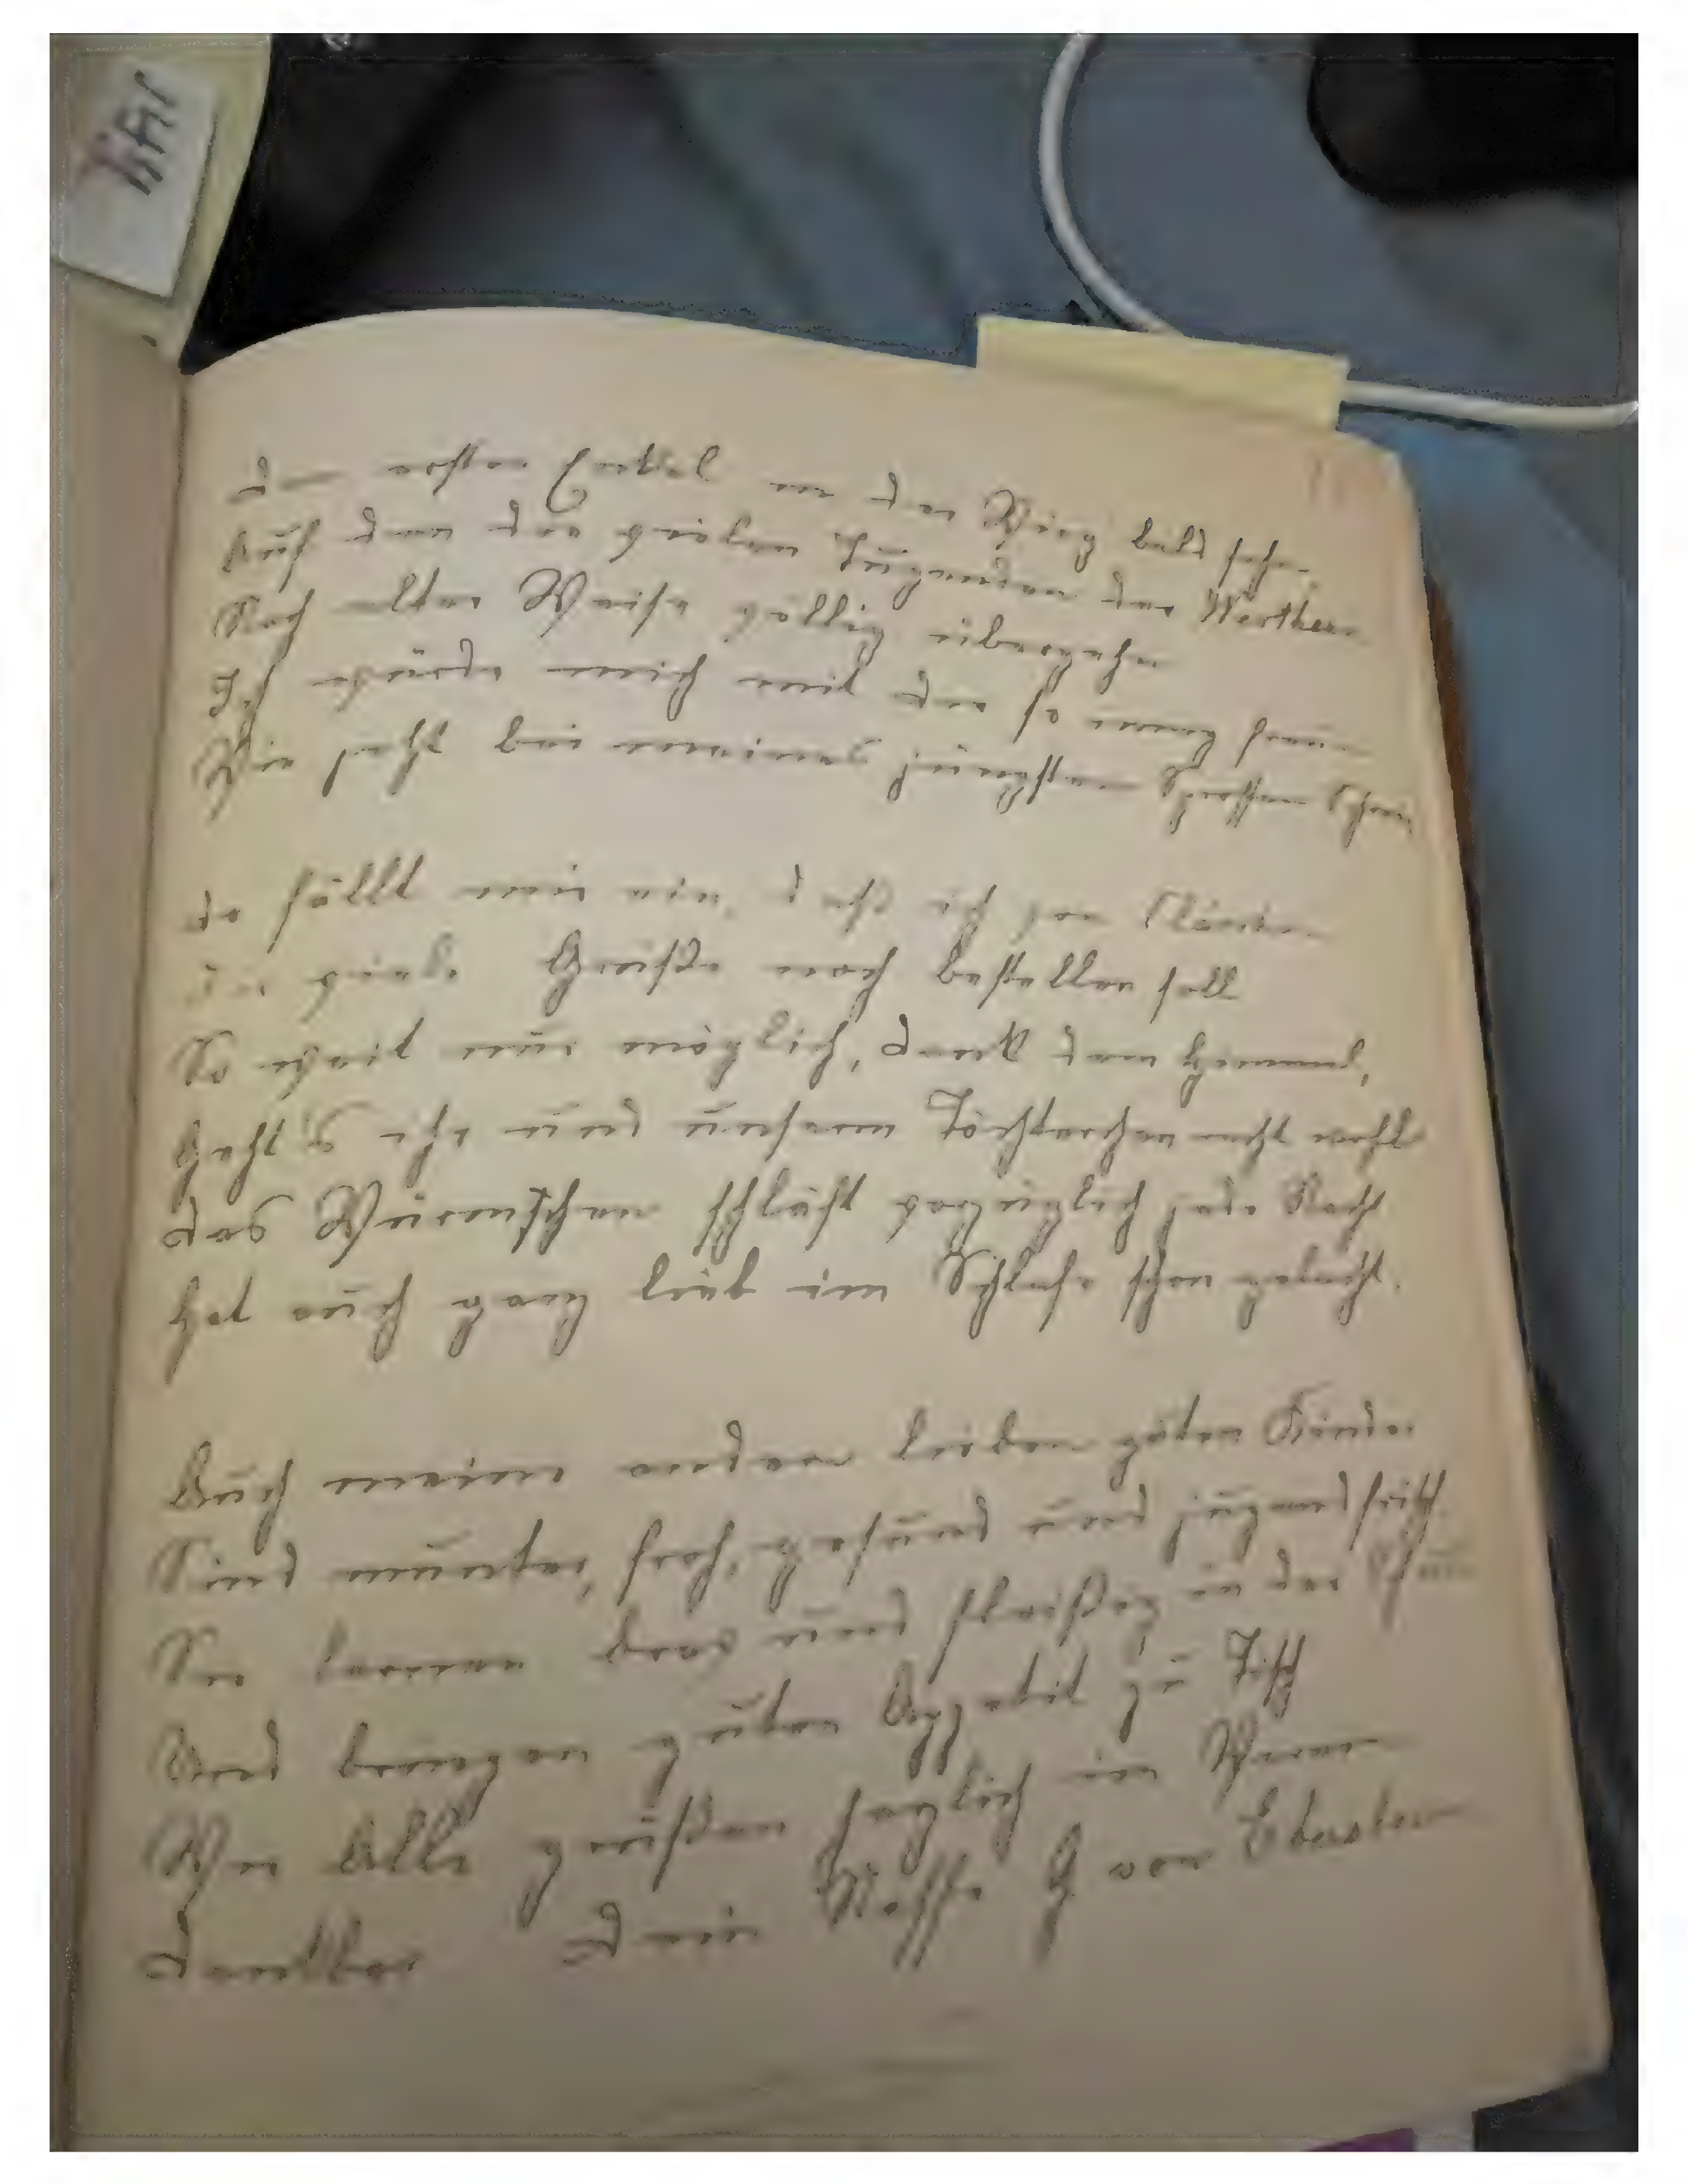 Den ersten Enkel in der Wieg bald sehn,
Auf den die vielen Tugenden der Werthern
Nach alter Weise völlig übergehn
Ich würde mich mit dir so innig freun
Wie jetzt bei meines jüngsten Sprossen Schrein
Da fällt mir ein, daß ich von
Dir viele Grüße noch bestellen soll
So weit nur möglich, Dank dem Himmel,
Geht's ihr und unserm Töchterchen recht wohl
Das Würmchen schläft vorzüglich jede Nacht
Hat auch ganz lieb im Schlafe schon gelacht.
Auch meine andern lieben guten Kinder
Sind munter, froh, gesund und jugendfrisch.
Sie lernen brav und fleißig in der
Und bringen guten Appetit zu Tisch
Wir Alle grüßen herzlich im Verein
Dankbar Dein Neffe H von Eberstein